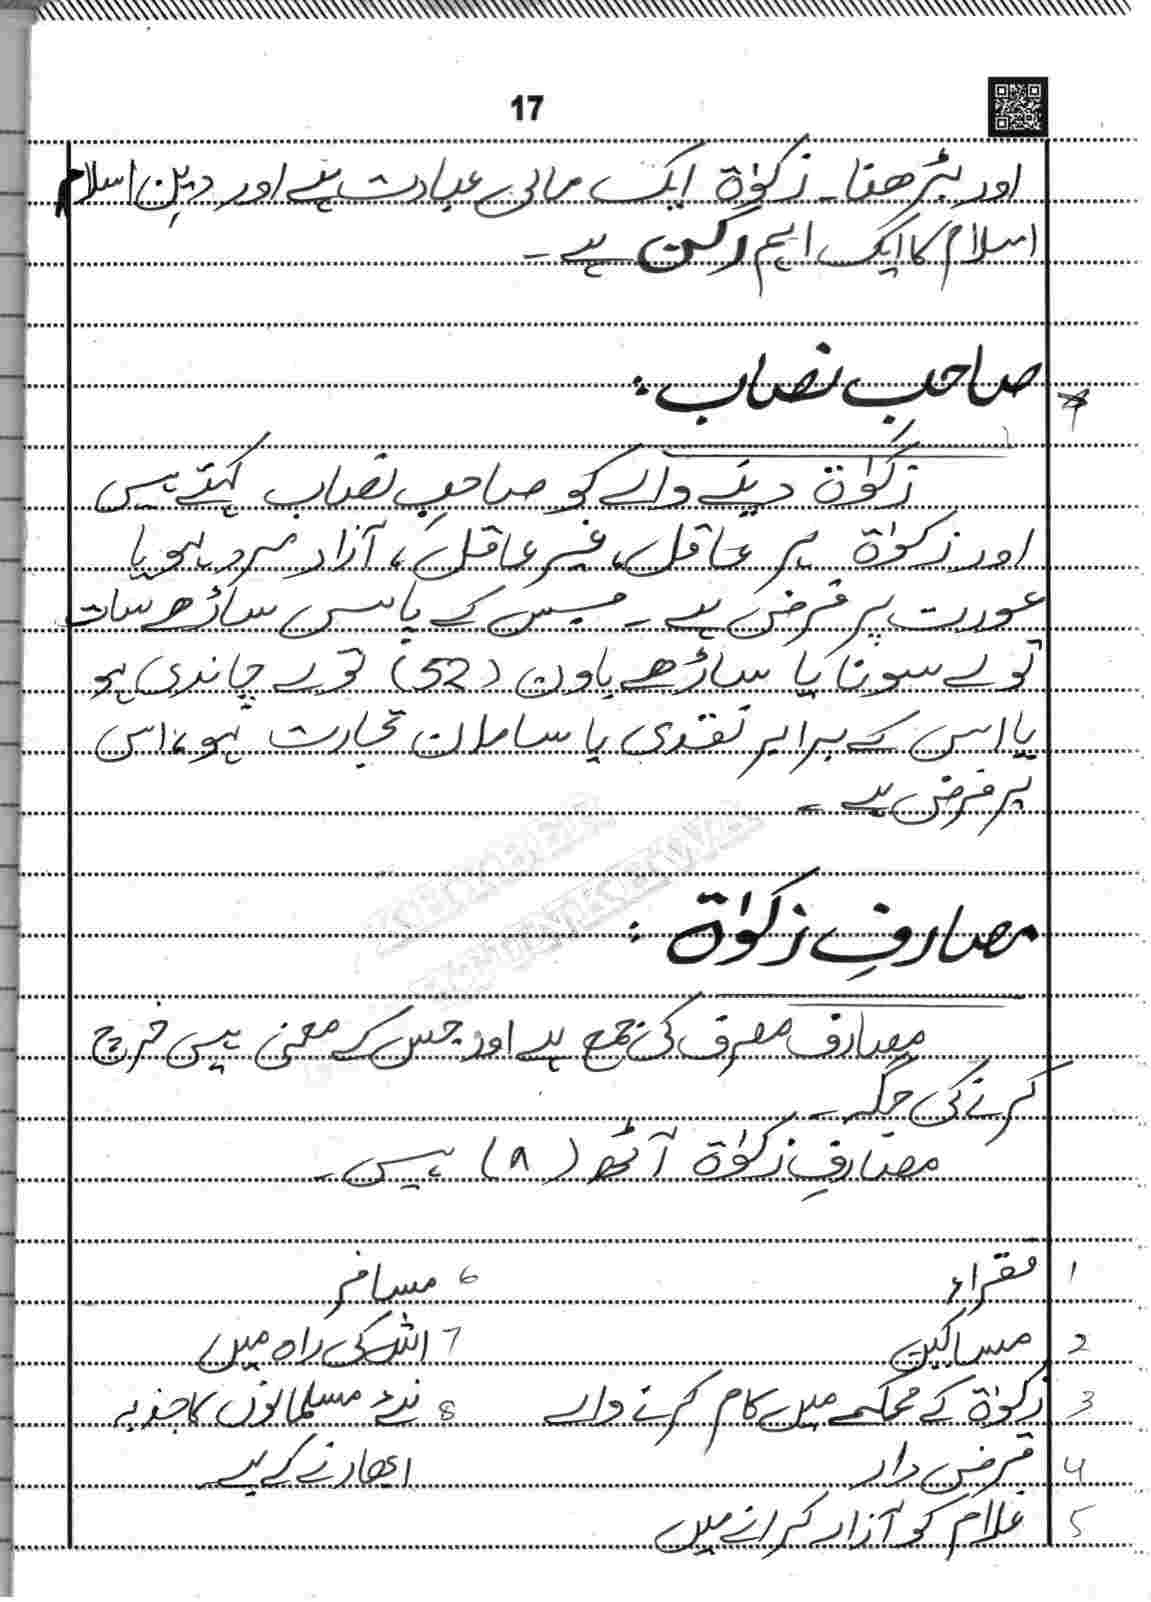 17
اور بڑھنا۔ زکوٰۃ ایک مالی عبادت ہے اور دینِ اسلام
اسلام کا ایک اہم رکن ہے۔
صاحبِ نصاب:
زکوٰۃ دینے والے کو صاحبِ نصاب کہتے ہیں
اور زکوٰۃ ہر عاقل، غیر عاقل، آزاد مرد ہو یا
عورت پر فرض ہے۔ جس کے پاس ساڑھے سات
تولے سونا یا ساڑھے باون (52) تولے چاندی ہو
یا اس کے برابر نقدی یا سامان تجارت ہو، اس
پر فرض ہے۔
KHYBER
PAKHTUNKHWA
مصارفِ زکوٰۃ:
مصارف مصرف کی جمع ہے اور جس کے معنی ہیں خرچ
کرنے کی جگہ۔
مصارفِ زکوٰۃ آٹھ (۸) ہیں۔
1 فقراء
2 مساکین
3 زکوٰۃ کے محکمے میں کام کرنے والے
4 قرض دار
5 غلام کو آزاد کرانے میں
6 مسافر
7 اللہ کی راہ میں
8 نئے مسلمانوں کا جذبہ
ابھارنے کے لیے